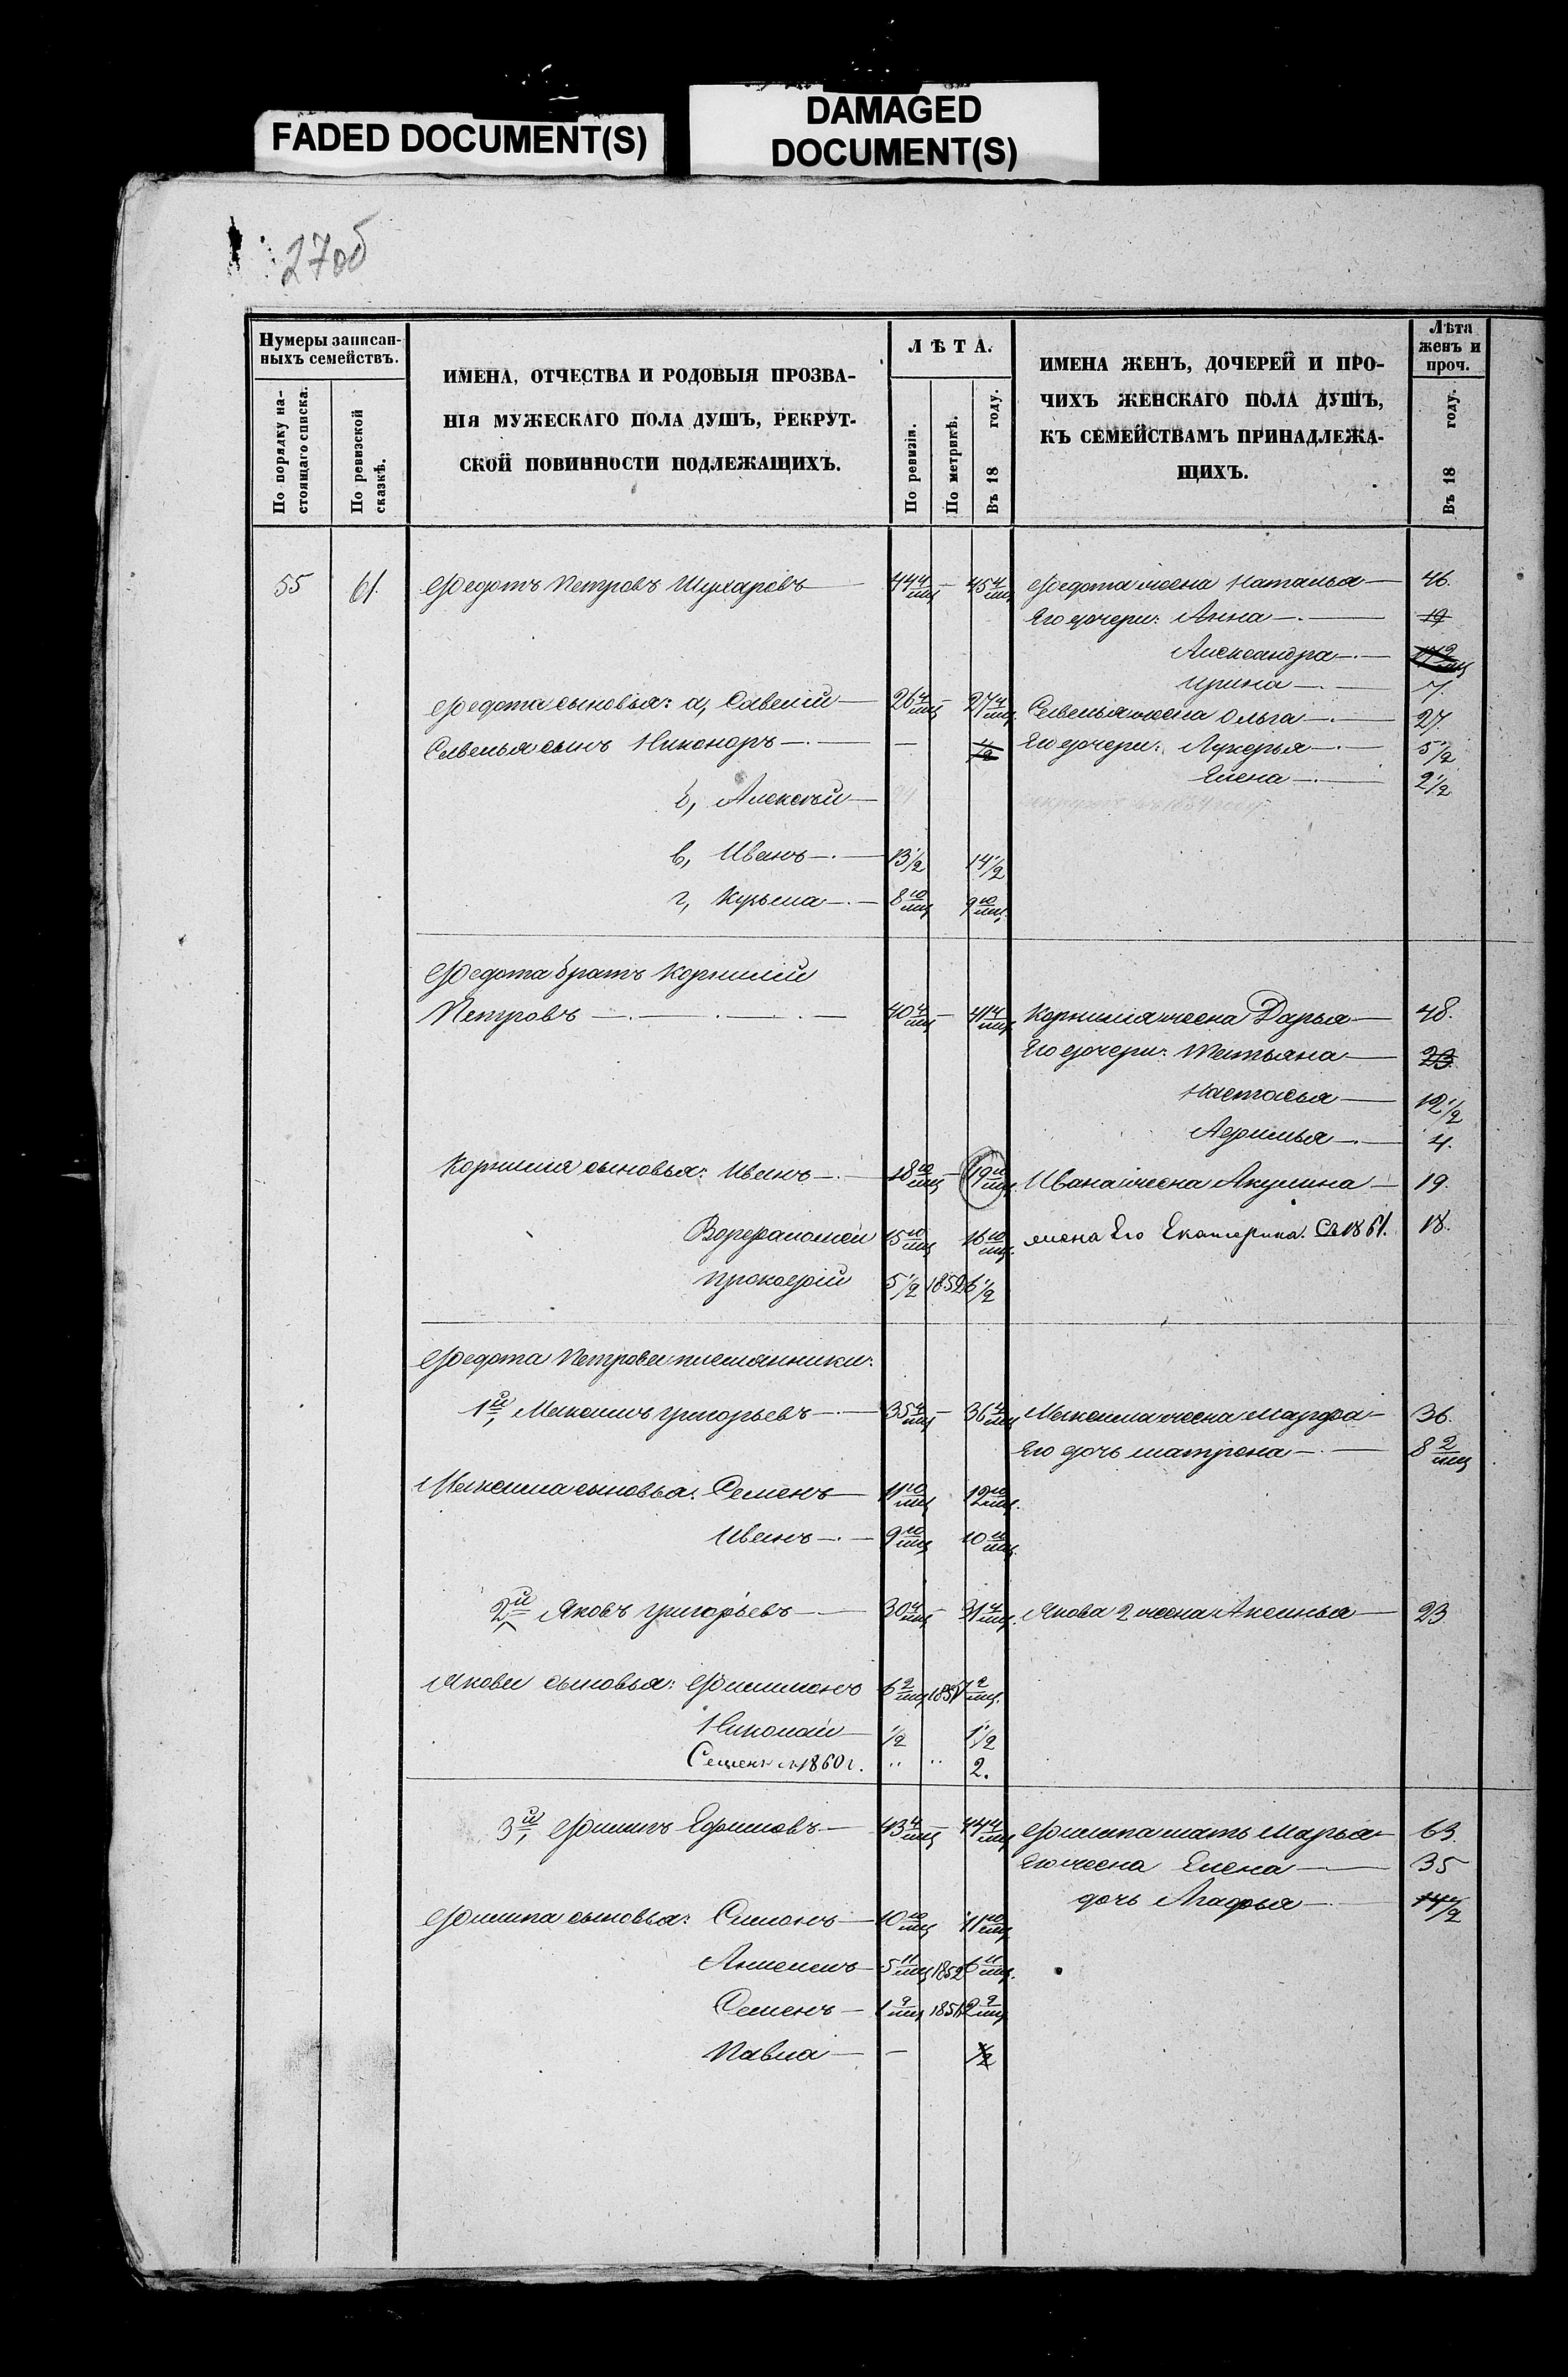 FADED DOCUMENT(S)
DAMAGED
DOCUMENT(S)
270б
Нумеры записан-
ныхъ семействъ.
По порядку на-
стоящаго списка.
По ревизской
сказкѣ.
ИМЕНА, ОТЧЕСТВА И РОДОВЫЯ ПРОЗВА-
НІЯ МУЖЕСКАГО ПОЛА ДУШЪ, РЕКРУТ-
СКОЙ ПОВИННОСТИ ПОДЛЕЖАЩИХЪ.
ЛѢТА.
По ревизіи.
По метрикѣ.
Въ 18 году.
ИМЕНА ЖЕНЪ, ДОЧЕРЕЙ И ПРО-
ЧИХЪ ЖЕНСКАГО ПОЛА ДУШЪ,
КЪ СЕМЕЙСТВАМЪ ПРИНАДЛЕЖА-
ЩИХЪ.
Лѣта
женъ и
проч.
Въ 18 году.
55 61. Ѳедотъ Петровъ Шухаровъ — 44 4/мц — 45 4/мц Ѳедота жена Наталья — 46.
Его дочери: Анна — 19
Александра —
Ирина — 7.
Ѳедота сыновья: а, Савелій — 26 4/мц — 27 4/мц. Савелья жена Ольга — 27.
Савелья сынъ Никоноръ — — 1/2 Его дочери: Лукерья — 5 1/2
Елена — 2 1/2
б, Алексѣй — 21
в, Иванъ — 13 1/2 14 1/2
г, Кузьма — 8 10/мц 9 10/мц.
Ѳедота братъ Корнилій
Петровъ — 40 4/мц — 41 4/мц Корнилія жена Дарья — 48.
Его дочери: Татьяна — 23.
Настасья — 12 1/2
Афимья — 4.
Корнилія сыновья: Иванъ — 18 10/мц — 19 10/мц. Ивана жена Акулина — 19.
Ворфаломей 15 10/мц 16 10/мц. жена Его Екатерина. Съ 1861. 18.
Прокофій 5 1/2 1852 6 1/2
Ѳедота Петрова племянники:
1й, Максимъ Григорьевъ — 35 4/мц — 36 4/мц Максима жена Марфа — 36.
Его дочь Матрена — 8 2/мц
Максима сыновья: Семенъ — 11 10/мц 12 10/мц.
Иванъ — 9 10/мц 10 10/мц.
2й Яковъ Григорьевъ — 30 4/мц — 31 4/мц. Якова 2 жена Аксинья — 23
Якова сыновья: Филимонъ 6 2/мц 1851 7 2/мц.
Николай — 1/2 1 1/2
Семенъ съ 1860 г. " " 2.
3й, Филипъ Ефимовъ — 43 4/мц — 44 4/мц Филипа мать Марья — 63.
Его жена Елена — 35
дочь Агафья — 14 1/2
Филипа сыновья: Симонъ — 10 10/мц 11 10/мц
5 11/мц 1852 6 11/мц.
Семенъ — 1 9/мц 2 9/мц
Павла — — 1/2